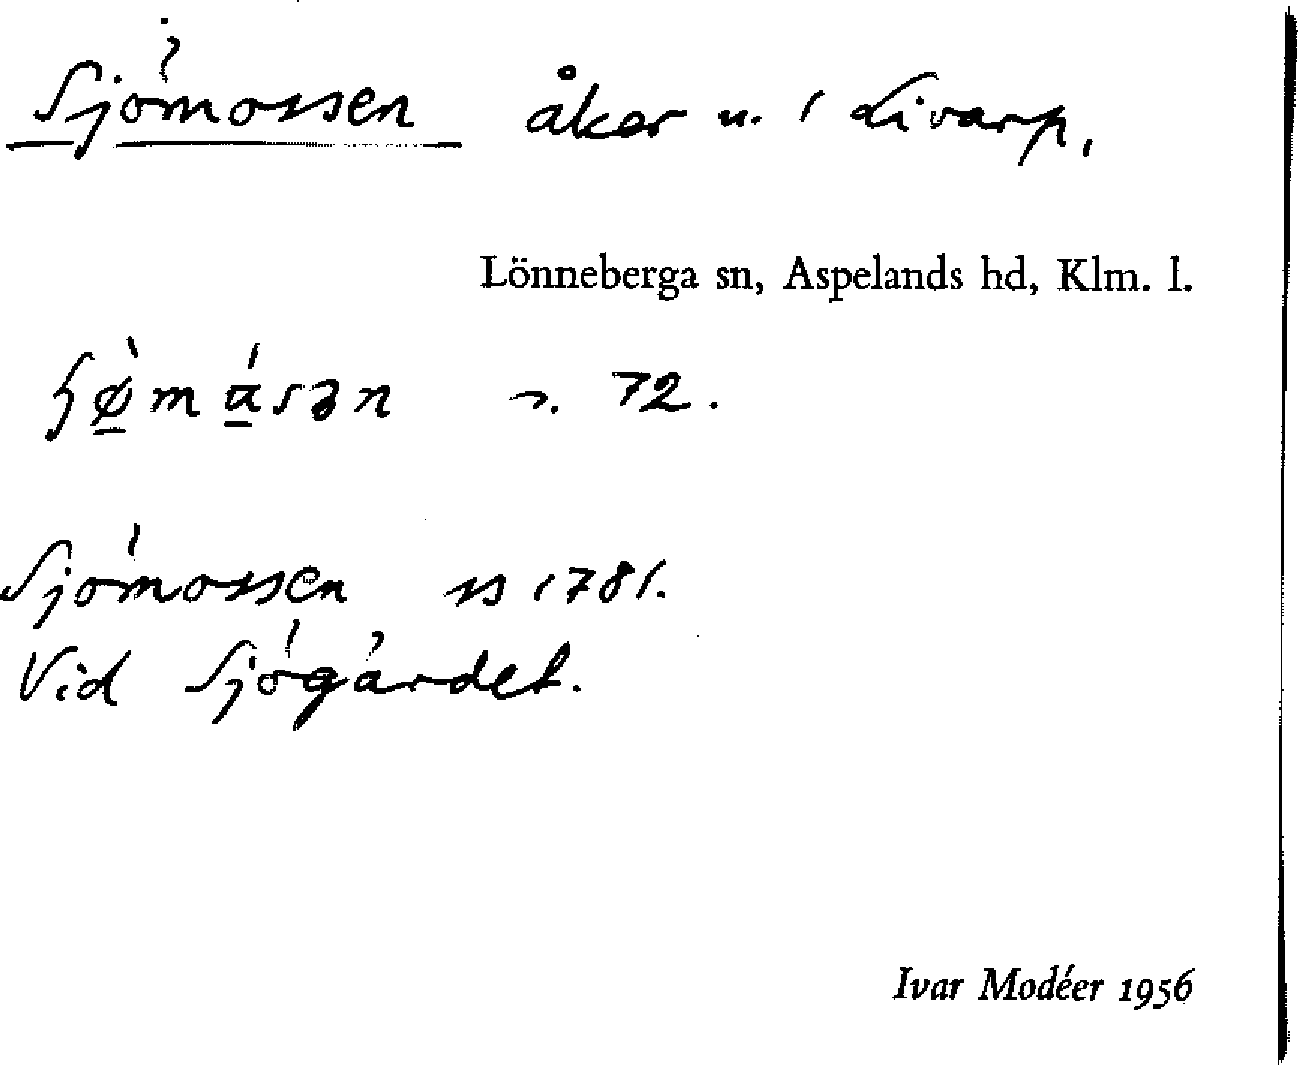 Sjömossen åker n. i Livarp,
Lönneberga sn, Aspelands hd, Klm. l.
ɧø̠̀mά̠sən n. 72.
Sjömossen ss 1781.
Vid Sjögärdet.
Ivar Modéer 1956